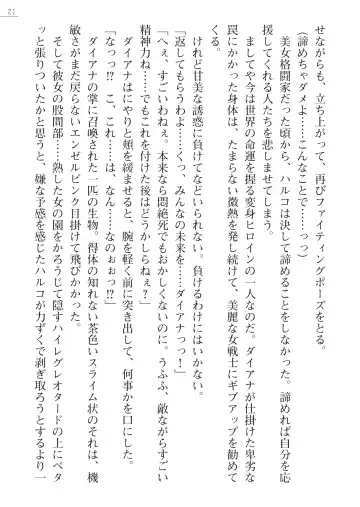 21
せながらも、立ち上がって、再びファイティングポーズをとる。
（諦めちゃダメよ……こんなことで……っ）
美女格闘家だった頃から、ハルコは決して諦めることをしなかった。諦めれば自分を応
援してくれる人たちを悲しませてしまう。
ましてや今は世界の命運を握る変身ヒロインの一人なのだ。ダイアナが仕掛けた卑劣な
罠にかかった身体は、たまらない微熱を発し続けて、美麗な女戦士にギブアップを勧めて
くる。
けれど甘美な誘惑に負けてなどいられない。負けるわけにはいかない。
「返してもらうわよ……くっ、みんなの未来を……ダイアナっっ！」
「へぇ、すごいわねぇ。本来なら悶絶死でもおかしくないのに。うふふ、敵ながらすごい
精神力ね……でもこれを付けた後はどうかしらねぇ？」
ダイアナはにやりと頬を緩ませると、腕を軽く前に突き出して、何事かを口にした。
「なっっ!?　こ、これ……は、なん……なのぉぉっ!?」
ダイアナの掌に召喚された一匹の生物。得体の知れない茶色いスライム状のそれは、機
敏さがまだ戻らないエンゼルピンク目掛けて飛びかかった。
そして彼女の股間部……熟した女の園をかろうじて隠すハイレグレオタードの上にベタ
ッと張りついたかと思うと、嫌な予感を感じたハルコが力ずくで剥ぎ取ろうとするより一